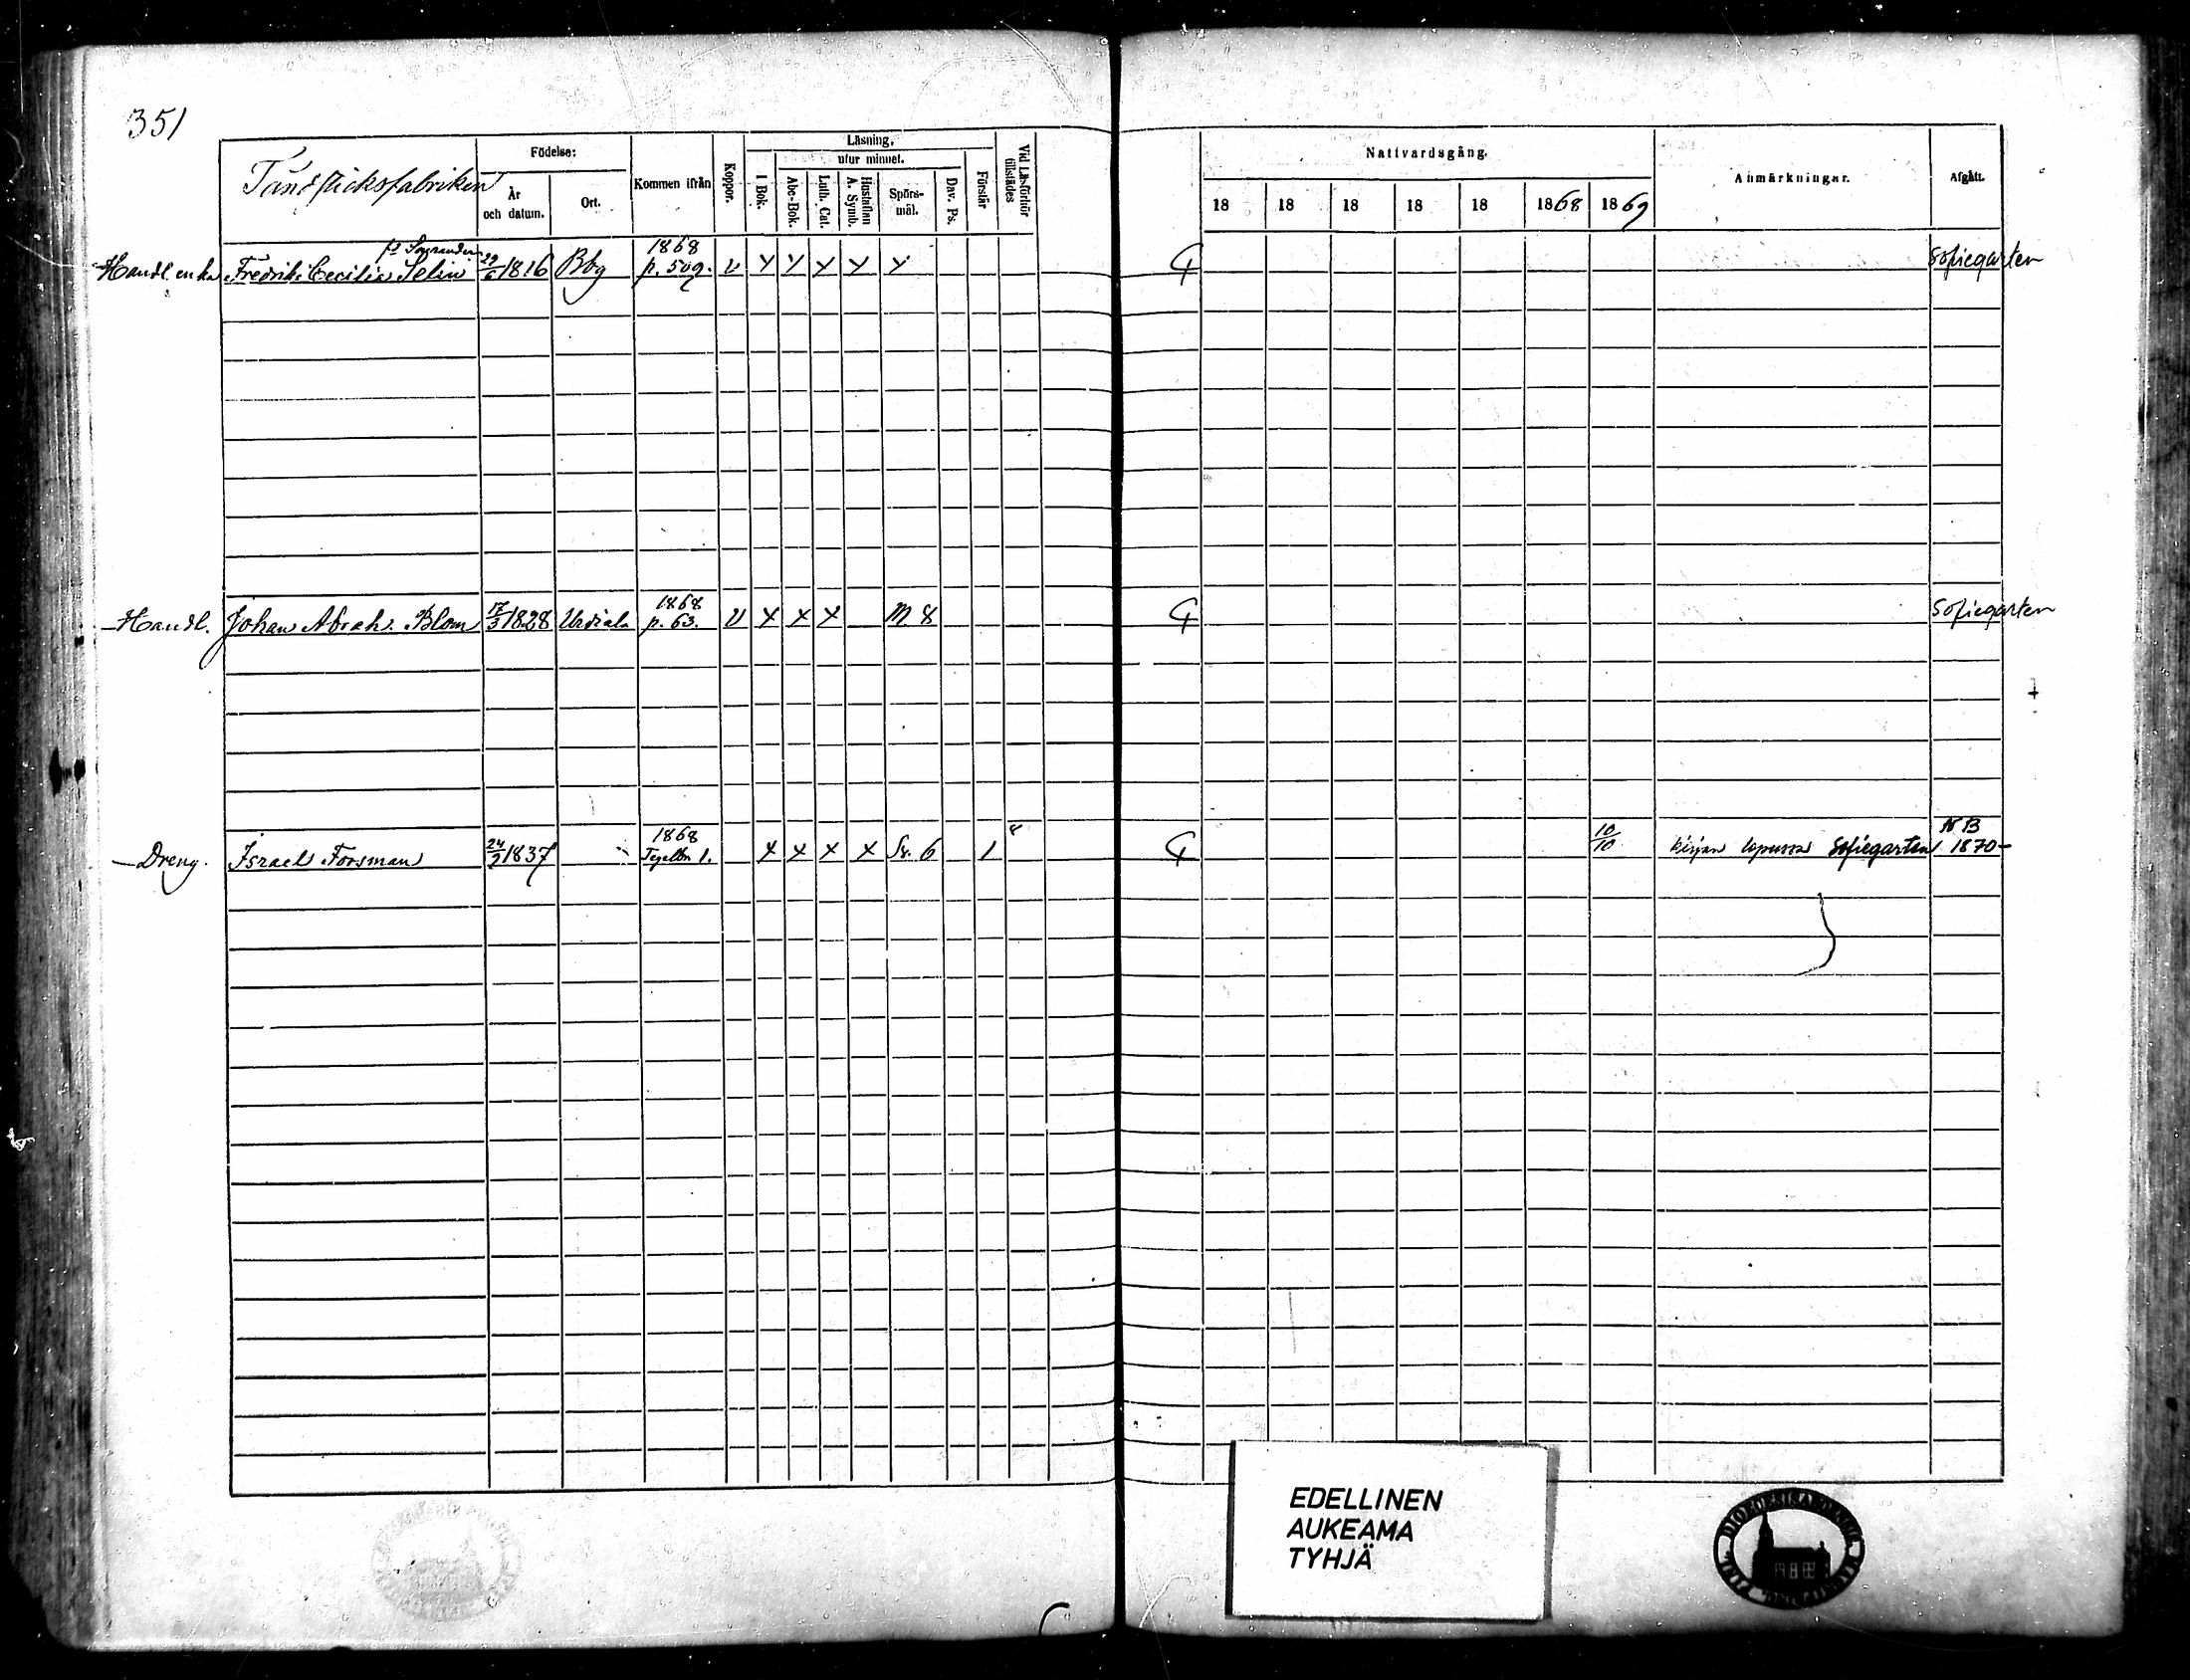 351
Tändsticksfabriken
Födelse:
År och datum.
Ort.
Kommen ifrån
Koppor.
Läsning,
utur minnet.
I Bok.
Abc-Bok.
Luth. Cat.
Hustaflan A. Symb.
Spörs-mål.
Dav. Ps.
Förstår
Vid Läsförhör tillstädes
Nattvardsgång.
18 18 18 18 18 1868 1869
Anmärkningar.
Afgått.
Handl. enka Fredrik. Cecilia Selin 29/6 1816 Bbg 1868 p. 509. v Y Y Y Y Y G Sofiegarten
Handl. Johan Abrah. Blom 17/3 1828 Urdiala 1868 p. 63. v X X X M. 8 G Sofiegarten
Dreng. Israel Forsman 24/2 1837 1868 X X X X Sv. 6 1 8 G 10/10 kirjan lopussa Sofiegarten NB 1870
EDELLINEN
AUKEAMA
TYHJÄ